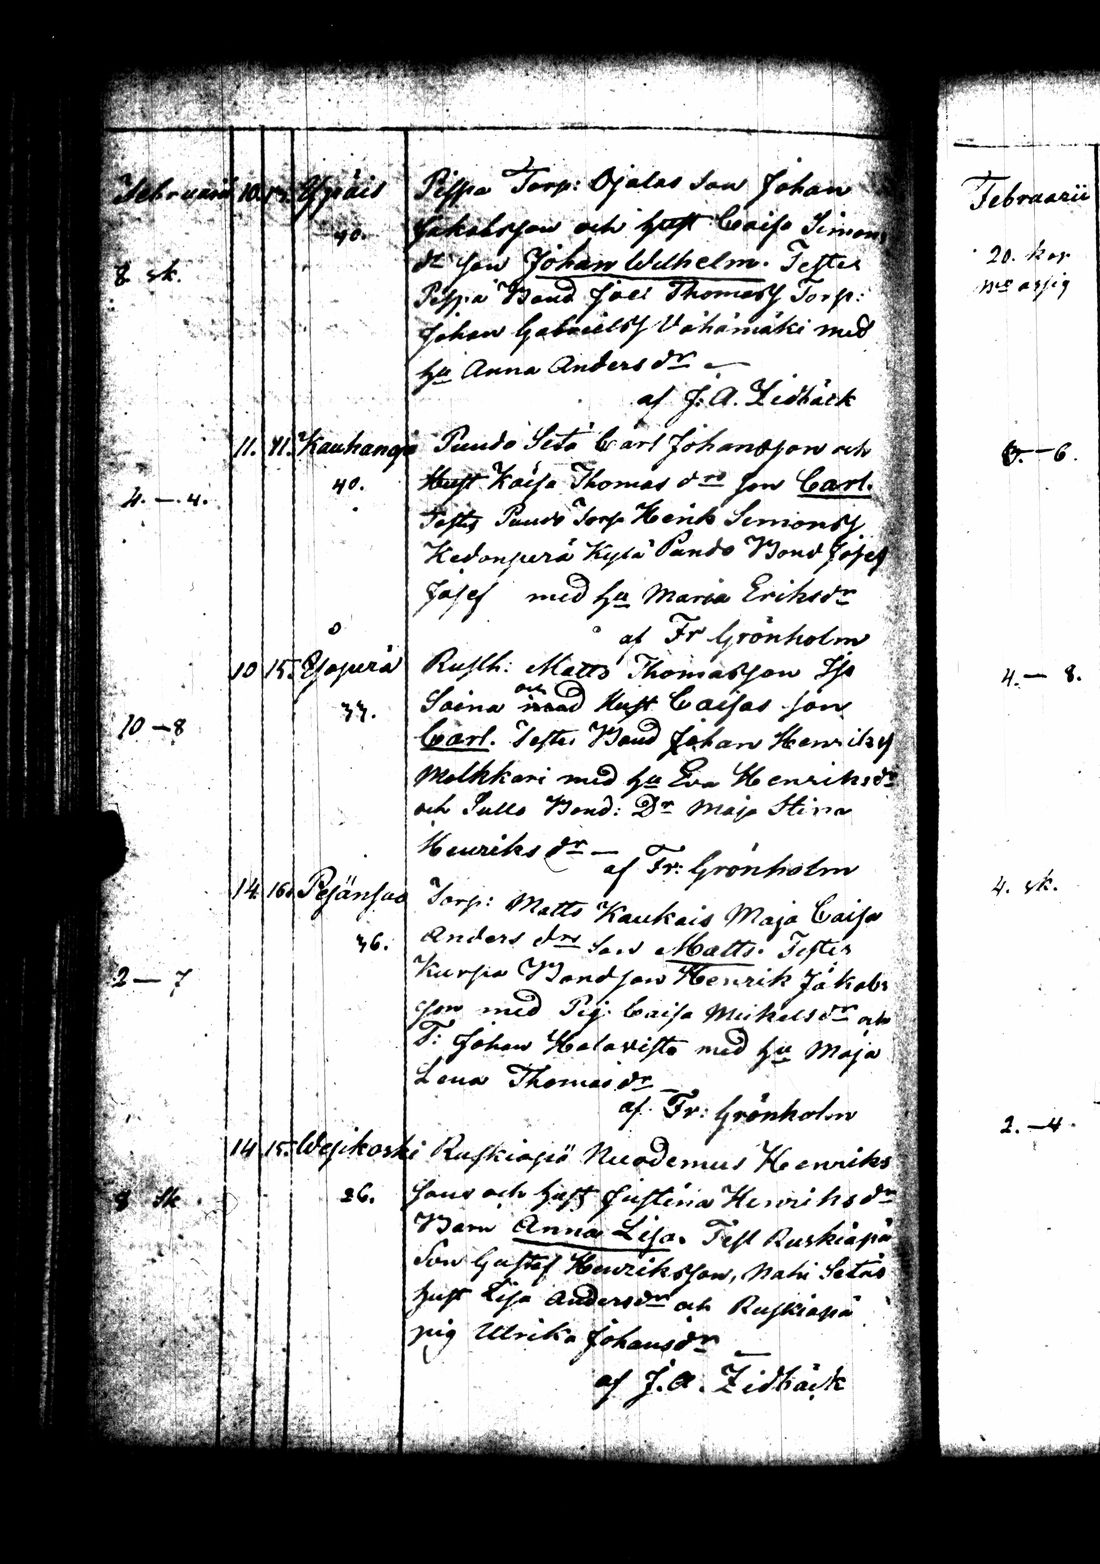 Februarii 10. Ypäis Pispa Torp: Ojalas son Johan
40. Jakobsson och hust Caisa Simons
8 sk. dr son Johan Wilhelm. Testes
Pispa Bond Joel Thomass Torp:
Johan Gabrielss Vähämäki med
hu Anna Anders dr
af J. A. Zidbäck
11. 11. Kauhanoja Pundo Seta Carl Johansson och
40. Hust Kaisa Thomas drs son Carl.
4. — 4.
Testes Pundo Torp Henk Simonss
Kedonperä Kylä Pundo Bond Josef
Josef med hu Maria Eriks dr
af Fr Grönholm
10 15. Yoperä Rusth: Matts Thomasson
33. Soina och Hust Caisas son
10 — 8 Carl. Testes Bond Johan Henrikss
Molkkari med hu Eva Henriks dr
och Sullo Bond: Dr Maja Stina
Henriks dr —
af Fr: Grönholm
14. 16. Pesänsuo Torp: Matts Kaukais Maja Caisa
36. Anders drs son Matts. Testes
2 — 7 Kurpa Bondson Henrik Jakobs
son med Pig. Caisa Mickelsdr och
T: Johan Halavisto med hu Maja
Lena Thomas dr
af Fr: Grönholm
14 15. Ruskiapä Nicodemus Henriks
26. sons och hust Justina Henriks dr
8 sk Barn Anna Lisa. Test Ruskiapä
Son Gustaf Henriksson, Nahi Setäs
hust Lisa Andersdr och Ruskiapä
pig Ulrika Johansdr
af J. A. Zidbäck
Februarii
20. kop
6.
4. — 8.
4. sk.
2. — 4